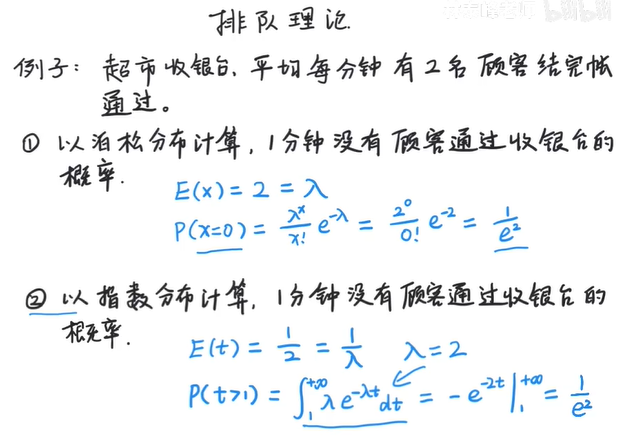 排队理论
例子：超市收银台，平均每分钟有2名顾客结完帐
通过。
① 以泊松分布计算，1分钟没有顾客通过收银台的
概率.
E(x) = 2 = λ
P(x=0) = λ^x/x! e^-λ = 2^0/0! e^-2 = 1/e^2
② 以指数分布计算，1分钟没有顾客通过收银台的
概率.
E(t) = 1/2 = 1/λ λ=2
P(t>1) = ∫_1^+∞ λe^-λt dt = -e^-2t |_1^+∞ = 1/e^2